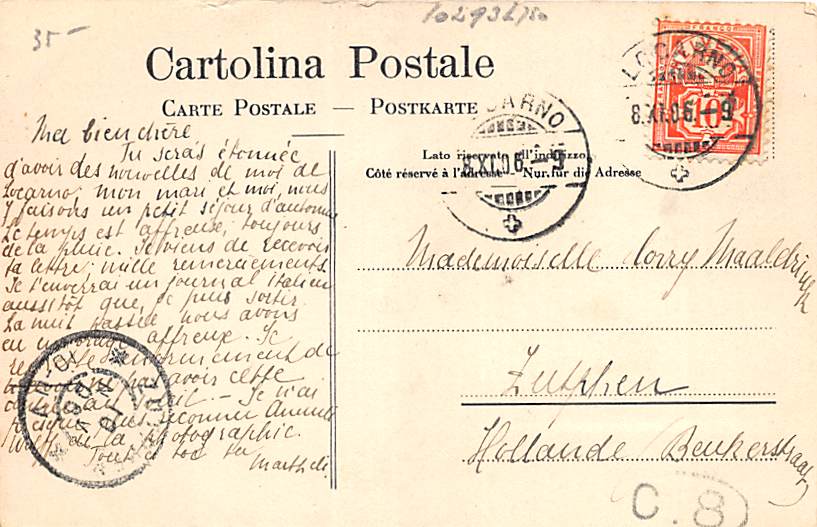 35-
Cartolina Postale
CARTE POSTALE — POSTKARTE
Lato riservato all'indirizzo
Côté réservé à l'adresse Nur für die Adresse
LOCARNO
8.XI.06.-9
LOCARNO
8.XI.06.-9
FRANCO
10
Ma bien chère
Tu seras étonnée
d'avoir des nouvelles de moi de
Locarno; mon mari et moi, nous
y faisons un petit séjour d'automne
Le temps est affreux, toujours
de la pluie. Je viens de recevoir
ta lettre, mille remerciements
Je t'enverrai un journal italien
aussitôt que je puis sortir.
La nuit passée nous avons
eu un orage affreux. Je
de
avoir cette
Je n'ai
reconnu
de la photographie.
Tout à toi ta
Mathilde
Mademoiselle Corry Maaldrink
Zutphen
Hollande Beukerstraat
C. 8